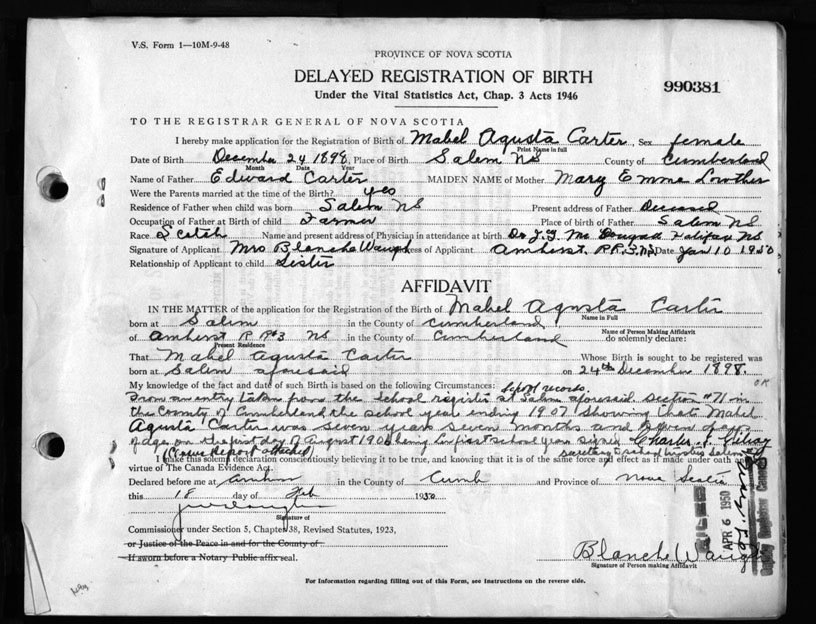 V.S. Form 1—10M-9-48
PROVINCE OF NOVA SCOTIA
DELAYED REGISTRATION OF BIRTH
Under the Vital Statistics Act, Chap. 3 Acts 1946
990381
TO THE REGISTRAR GENERAL OF NOVA SCOTIA
I hereby make application for the Registration of Birth of Mabel Agusta Carter Sex female
Print Name in full
Date of Birth December 24 1898, Place of Birth Salem NS County of Cumberland
Month Date Year
Name of Father Edward Carter MAIDEN NAME of Mother Mary Emma Lowther
Were the Parents married at the time of the Birth? yes
Residence of Father when child was born Salem NS Present address of Father Deceased
Occupation of Father at Birth of child Farmer Place of birth of Father Salem NS
Race Scotch Name and present address of Physician in attendance at birth Dr Halifax NS
Signature of Applicant Mrs Blanche Waugh Address of Applicant Amherst, R.R.3, NS Date Jan 10 1950
Relationship of Applicant to child Sister
AFFIDAVIT
IN THE MATTER of the application for the Registration of the Birth of Mabel Agusta Carter
Name in Full
born at Salem in the County of Cumberland
Name of Person Making Affidavit
of Amherst R R #3 NS in the County of Cumberland do solemnly declare:
Present Residence
That Mabel Agusta Carter Whose Birth is sought to be registered was
born at Salem aforesaid on 24th December 1898.
My knowledge of the fact and date of such Birth is based on the following Circumstances: School records.
OK
From an entry taken from the school register at Salem aforesaid section #71 in
the County of Cumberland the school year ending 1907 showing that Mabel
Agusta Carter was seven years seven months and seven days
of age on the first day of August 1906 being her first school year signed Charles
secretary school trustees Salem NS
attached)
I make this solemn declaration conscientiously believing it to be true, and knowing that it is of the same force and effect as if made under oath and by
virtue of The Canada Evidence Act.
Declared before me at Amherst in the County of Cumb and Province of Nova Scotia
this 18 day of Feb 1950
Signature of
Commissioner under Section 5, Chapter 38, Revised Statutes, 1923,
or Justice of the Peace in and for the County of
If sworn before a Notary Public affix seal.
Blanche Waugh
Signature of Person making Affidavit
FILED
APR 6 1950
For Information regarding filling out of this Form, see Instructions on the reverse side.